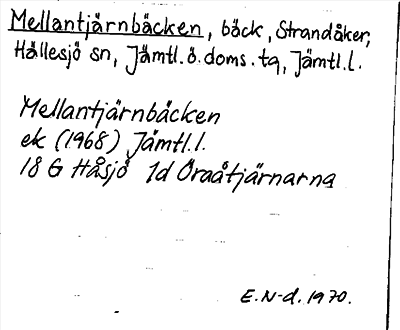 Mellantjärnbäcken, bäck, Strandåker,
Hällesjö sn, Jämtl.ö.doms.tg, Jämtl.l.
Mellantjärnbäcken
ek (1968) Jämtl.l.
18 G Håsjö 1d Öraåtjärnarna
E.N-d. 1970.